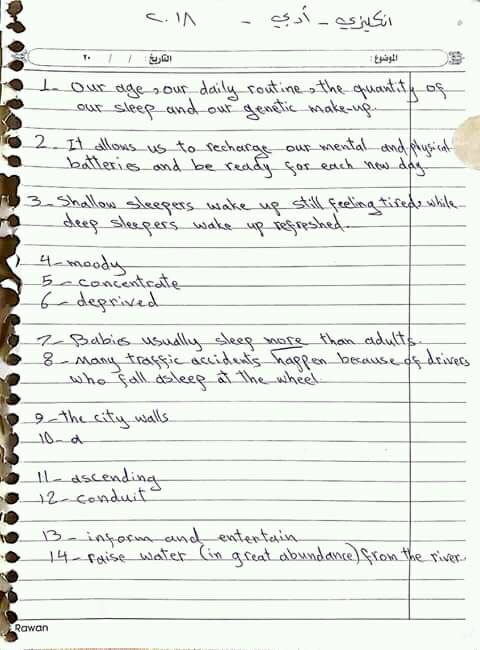 انكليزي - أدبي - ٢٠١٨
الموضوع: التاريخ: / / ٢٠
1- Our age, our daily routine, the quantity of
our sleep and our genetic make-up.
2- It allows us to recharge our mental and physical
batteries and be ready for each new day
3- Shallow sleepers wake up still feeling tired, while
deep sleepers wake up refreshed.
4- moody
5- concentrate
6- deprived
7- Babies usually sleep more than adults.
8- Many traffic accidents happen because of drivers
who fall asleep at the wheel.
9- the city walls
10- a
11- ascending
12- conduit
13- inform and entertain
14- raise water (in great abundance) from the river.
Rawan